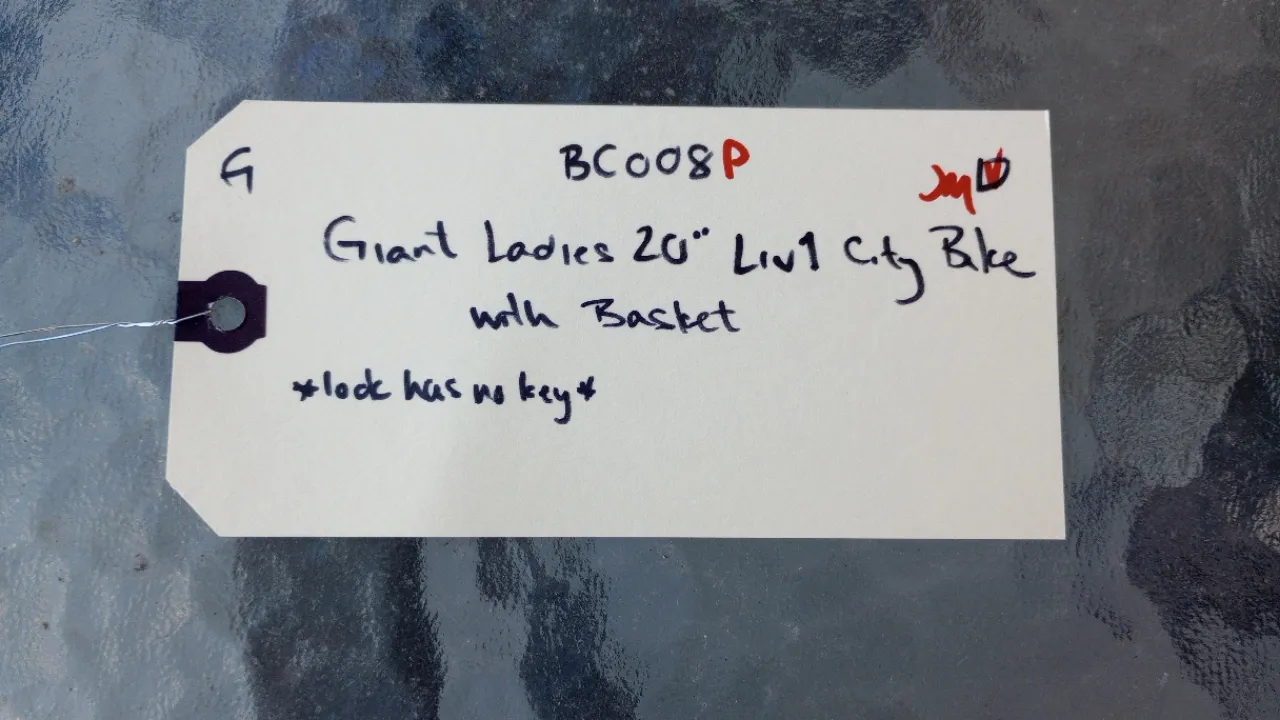 G
BC008P
Giant Ladies 20" Liv1 City Bike
with Basket
*lock has no key*